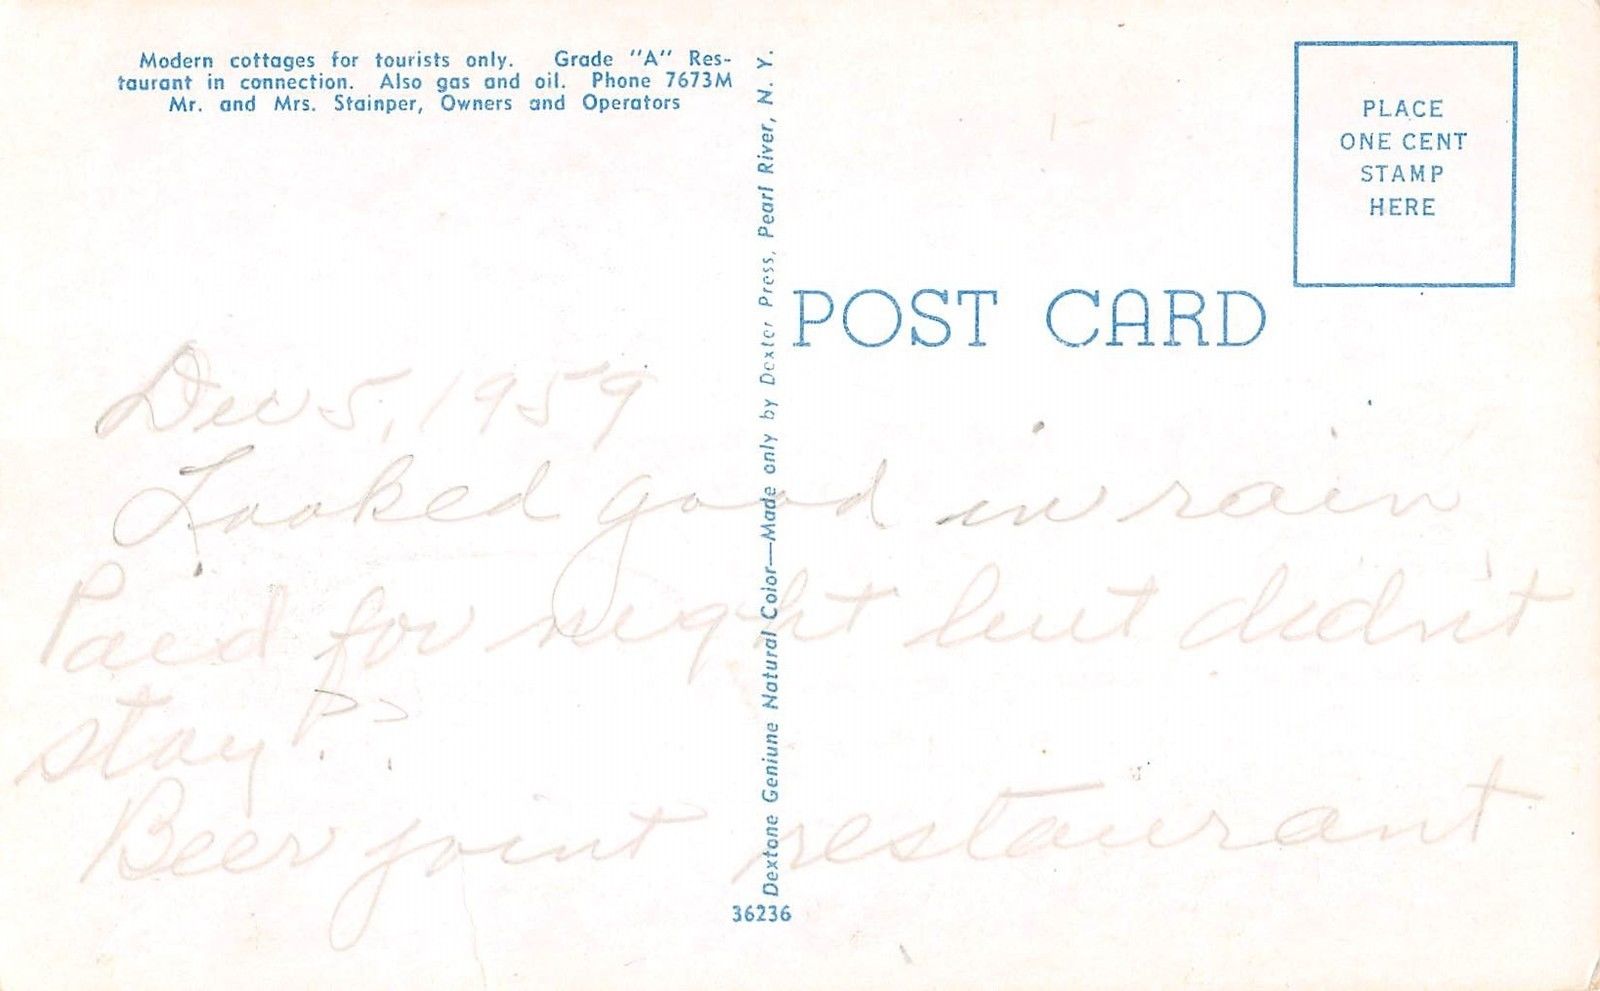 Modern cottages for tourists only. Grade "A" Res-
taurant in connection. Also gas and oil. Phone 7673M
Mr. and Mrs. Stainper, Owners and Operators
Dextone Geniune Natural Color—Made only by Dexter Press, Pearl River, N. Y.
36236
PLACE
ONE CENT
STAMP
HERE
POST CARD
Dec 5, 1959
Looked good in rain
Paid for night but didn't
stay??
Beer joint restaurant